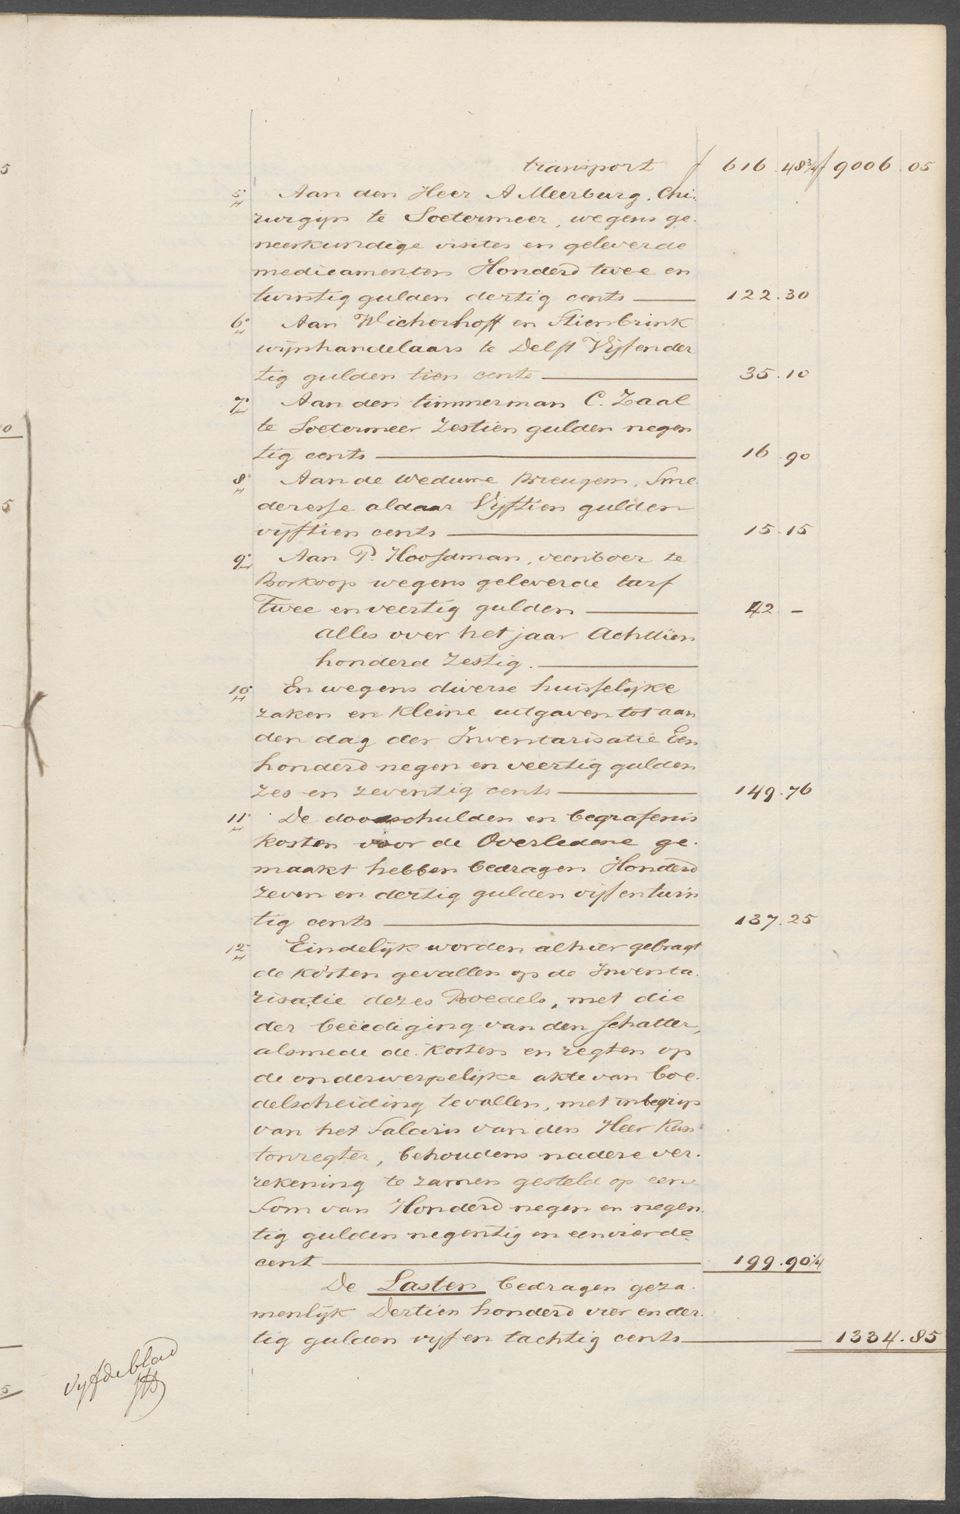 transport f 616.48¾ f 9006.05
5° Aan den Heer A Meerburg, Chi-
rurgijn te Soetermeer, wegens ge-
neeskundige visites en geleverde
medicamenten Honderd twee en
twintig gulden dertig cents 122.30
6° Aan Wicherhoff en Stienbrink
wijnhandelaars te Delft Vijf en der
tig gulden tien cents 35.10
7° Aan den timmerman C. Zaal
te Soetermeer Zestien gulden negen
tig cents 16.90
8° Aan de weduwe Breugem, Sme
deresse aldaar Vijftien gulden
vijftien cents 15.15
9° Aan P. Hoofdman, veenboer te
Boskoop wegens geleverde turf
Twee en veertig gulden 42 –
alles over het jaar Achttien
honderd Zestig.
10° En wegens diverse huisselijke
zaken en kleine uitgaven tot aan
den dag der Inventarisatie Een
honderd negen en veertig gulden
zes en zeventig cents 149.76
11° De doodschulden en begrafenis
kosten voor de Overledene ge-
maakt hebben bedragen Honderd
zeven en dertig gulden vijf en twin
tig cents 137.25
12° Eindelijk worden alhier gebragt
de kosten gevallen op de Inventa-
risatie dezes Boedels, met die
der beëediging van den schatter,
alsmede de kosten en regten op
de onderwerpelijke akte van boe-
delscheiding te vallen, met inbegrip
van het Salaris van den Heer Kan
tonregter, behoudens nadere ver-
rekening te zamen gesteld op een
Som van Honderd negen en negen
tig gulden negentig en een vierde
cent 199.90¼
De Lasten bedragen geza-
menlijk Dertien honderd vier en der-
tig gulden vijf en tachtig cents 1334.85
Vijfde blad